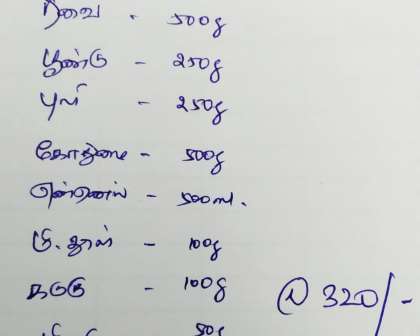 ரவை - 500g
பூண்டு - 250g
புளி - 250g
கோதுமை - 500g
எண்ணெய் - 500ml.
மி.தூள் - 100g
கடுகு - 100g @ 320/-
50g